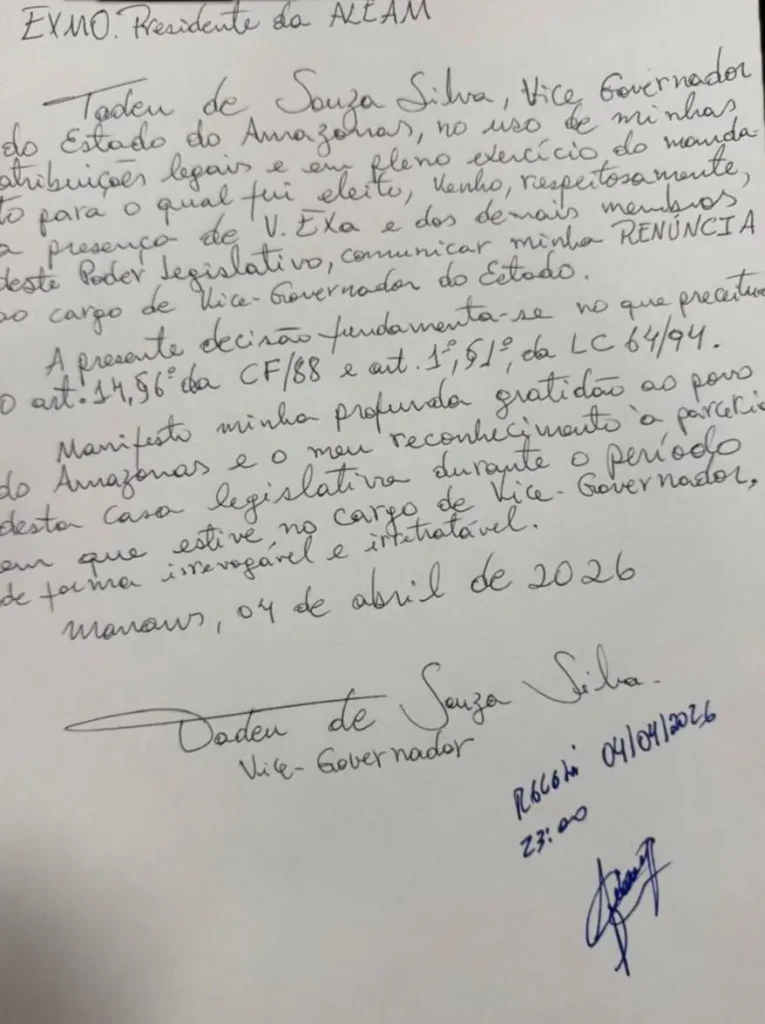 EXMO. Presidente da ALEAM
Tadeu de Souza Silva, Vice Governador
do Estado do Amazonas, no uso de minhas
atribuições legais e em pleno exercício do manda-
to para o qual fui eleito, venho, respeitosamente,
a presença de V. EXa e dos demais membros
deste Poder Legislativo, comunicar minha RENÚNCIA
ao cargo de Vice-Governador do Estado.
A presente decisão fundamenta-se no que preceitua
O art. 14, §6º da CF/88 e art. 1º, §1º, da LC 64/94.
Manifesto minha profunda gratidão ao povo
do Amazonas e o meu reconhecimento à parceria
desta casa legislativa durante o período
em que estive, no cargo de Vice-Governador,
de forma irrevogável e irretratável.
Manaus, 04 de abril de 2026
Tadeu de Souza Silva.
Vice-Governador
Recebi 04/04/2026
23:00